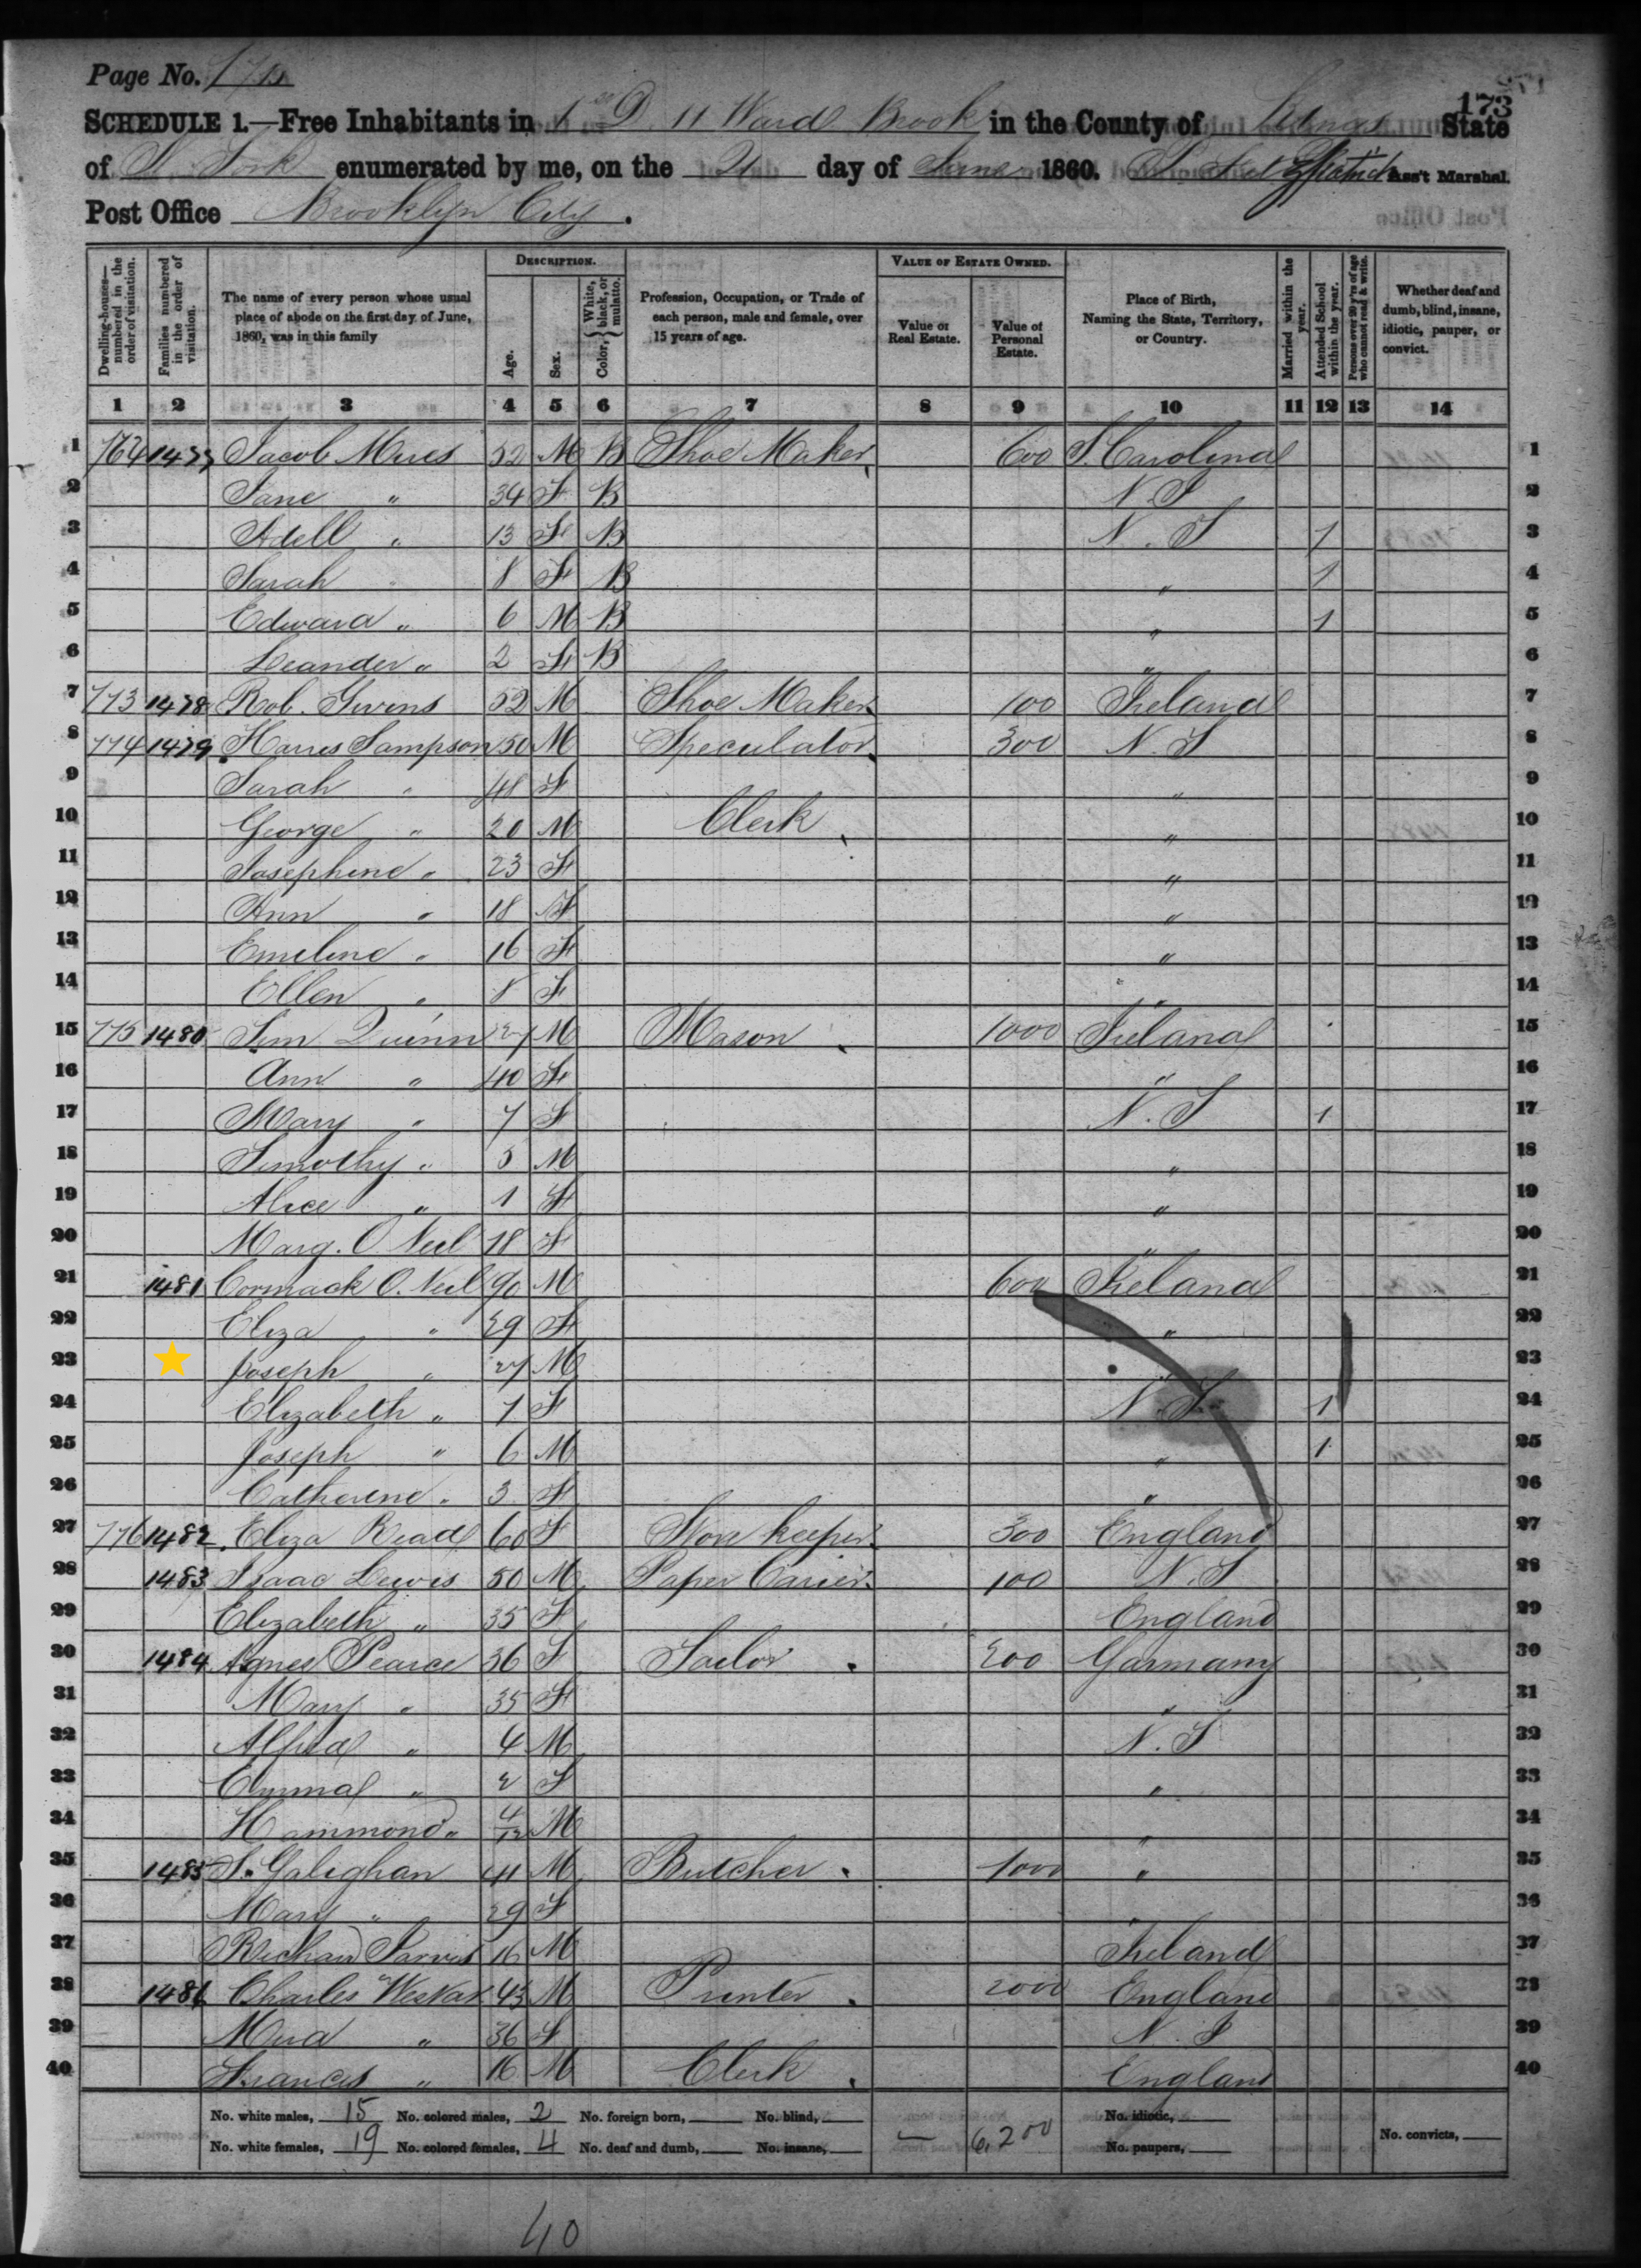 Page No. 173
173
SCHEDULE 1.—Free Inhabitants in 1st D 11 Ward Brook in the County of Kings State
of N. York enumerated by me, on the 21 day of June 1860. Ass't Marshal.
Post Office Brooklyn City.
DESCRIPTION. VALUE OF ESTATE OWNED.
Dwelling-houses—numbered in the order of visitation. Families numbered in the order of visitation. The name of every person whose usual place of abode on the first day of June, 1860, was in this family Age. Sex. Color, { White, black, or mulatto. Profession, Occupation, or Trade of each person, male and female, over 15 years of age. Value of Real Estate. Value of Personal Estate. Place of Birth, Naming the State, Territory, or Country. Married within the year. Attended School within the year. Persons over 20 y'rs of age who cannot read & write. Whether deaf and dumb, blind, insane, idiotic, pauper, or convict.
1 2 3 4 5 6 7 8 9 10 11 12 13 14
1 764 1477 Jacob 52 M B Shoe Maker 600 S. Carolina 1
2 Jane " 34 F B N. J 2
3 Adell " 13 F B N. Y 1 3
4 Sarah " 8 F B " 1 4
5 Edward " 6 M B " 1 5
6 Leander " 2 F B " 6
7 773 1478 Rob. Givins 52 M Shoe Maker 100 Ireland 7
8 774 1479 Harris Sampson 50 M Speculator 300 N. Y 8
9 Sarah " 48 F " 9
10 George " 20 M Clerk " 10
11 Josephine " 23 F " 11
12 Ann " 18 F " 12
13 Emeline " 16 F " 13
14 Ellen " 8 F " 14
15 775 1480 Tim Quinn 27 M Mason 1000 Ireland 15
16 Ann " 40 F " 16
17 Mary " 7 F N. Y 1 17
18 Timothy " 5 M " 18
19 Alice " 1 F " 19
20 Marg. O. Neil 18 F " 20
21 1481 Cormack O. Neil 90 M 600 Ireland 21
22 Eliza " 29 F " 22
23 Joseph " 27 M 23
24 Elizabeth " 7 F N. Y. 1 24
25 Joseph " 6 M " 1 25
26 Catherine " 3 F " 26
27 776 1482 Eliza Read 60 F Store keeper 300 England 27
28 1483 Isaac Lewis 50 M Paper Carier 100 N. Y 28
29 Elizabeth " 35 F England 29
30 1484 Agnes Pearce 36 F Tailor 200 Garmany 30
31 Mary " 35 F " 31
32 Alfred " 4 M N. Y 32
33 Emmal " 2 F " 33
34 Hammond " 4/12 M " 34
35 1485 T. Galighan 41 M Butcher 1000 " 35
36 Mary " 29 F " 36
37 Richard Jarvis 16 M Ireland 37
38 1486 Charles 43 M Printer 2000 England 38
39 " 36 F N. J 39
40 Frances " 16 M Clerk England 40
No. white males, 15 No. colored males, 2 No. foreign born, No. blind, No. idiotic,
No. white females, 19 No. colored females, 4 No. deaf and dumb, No. insane, — 6,200 No. paupers, No. convicts,
40